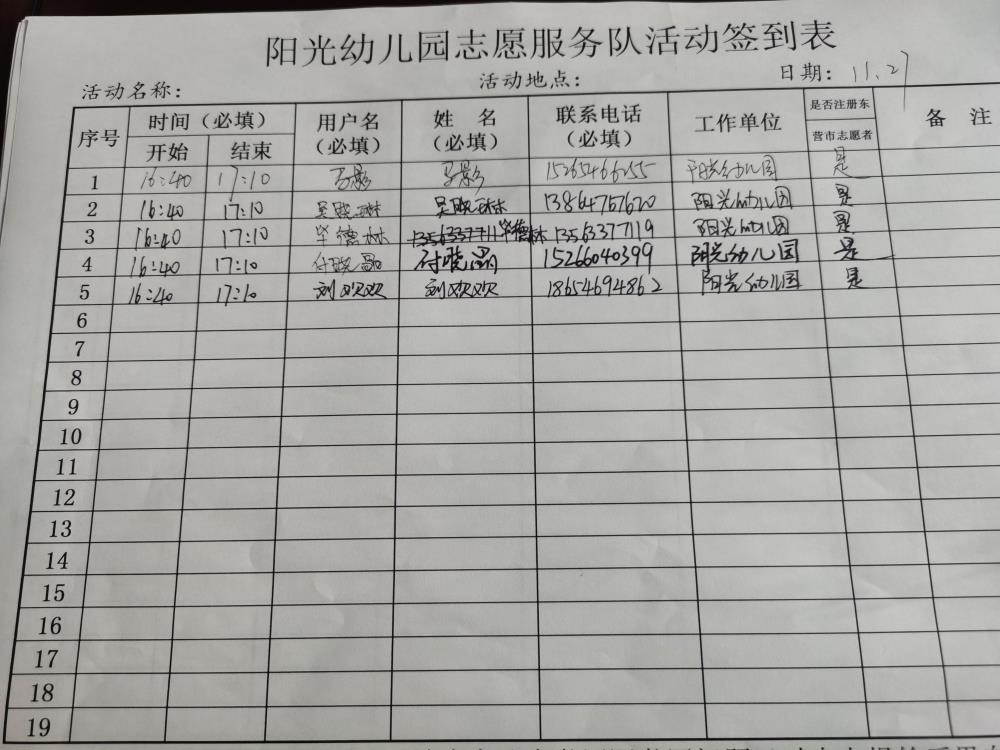 阳光幼儿园志愿服务队活动签到表
活动名称: 活动地点: 日期: 11.27
序号 时间(必填) 用户名(必填) 姓 名(必填) 联系电话(必填) 工作单位 是否注册东营市志愿者 备 注
开始 结束
1 16:40 17:10 马影 马影 15265466255 阳光幼儿园 是
2 16:40 17:10 吴晓琳 吴晓琳 13864757620 阳光幼儿园 是
3 16:40 17:10 毕德林 毕德林 13563377119 阳光幼儿园 是
4 16:40 17:10 付晓晶 付晓晶 15266040399 阳光幼儿园 是
5 16:40 17:10 刘欢欢 刘欢欢 18654694862 阳光幼儿园 是
6
7
8
9
10
11
12
13
14
15
16
17
18
19